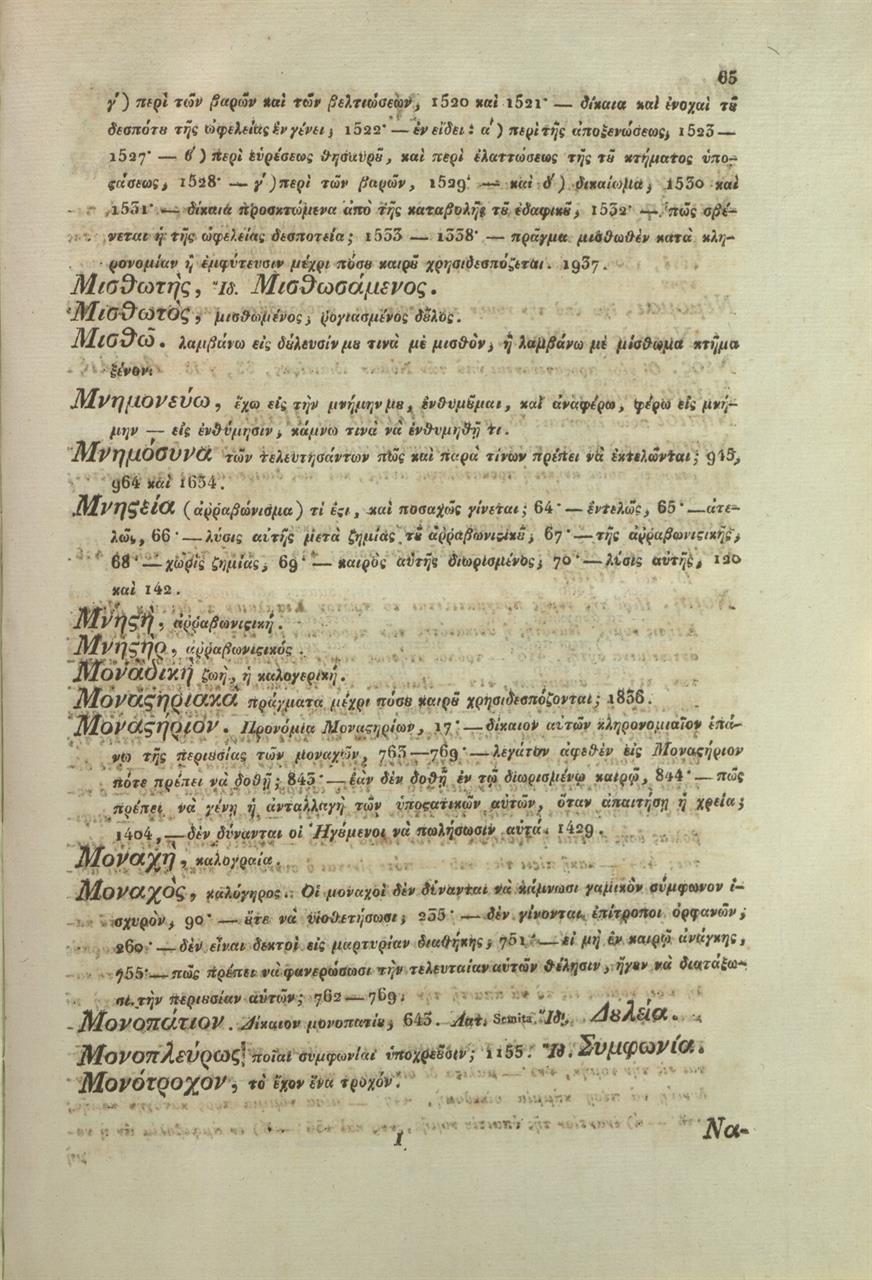 65
γ΄) περὶ τῶν βαρῶν καὶ τῶν βελτιώσεων, 1520 καὶ 1521· — δίκαια καὶ ἐνοχαὶ τȣ͂
δεσπότȣ τῆς ὠφελείας ἐν γένει, 1522· — ἐν εἴδει: α΄) περὶ τῆς ἀποξενώσεως, 1523 —
1527· — β΄) περὶ εὑρέσεως θησαυρȣ͂, καὶ περὶ ἐλαττώσεως τῆς τȣ͂ κτήματος ὑπο-
ϛάσεως, 1528· — γ΄) περὶ τῶν βαρῶν, 1529· — καὶ δ΄) δικαίωμα, 1530 καὶ
1531· — δίκαιά προσκτώμενα ἀπὸ τῆς καταβολῆς τȣ͂ ἐδαφικȣ͂, 1532· — πῶς σβέ-
νεται ἡ τῆς ὠφελείας δεσποτεία; 1533 — 1338· — πρᾶγμα μισθωθὲν κατὰ κλη-
ρονομίαν ἢ ἐμφύτευσιν μέχρι πόσȣ καιρȣ͂ χρησιδεσπόζεται. 1937.
Μισθωτὴς, Ἴδ. Μισθωσάμενος.
Μισθωτὸς, μισθωμένος, ῥογιασμένος δȣ͂λος.
Μισθῶ. λαμβάνω εἰς δȣ́λευσίν μȣ τινὰ μὲ μισθὸν, ἢ λαμβάνω μὲ μίσθωμα κτῆμα
ξένον.
Μνημονεύω, ἔχω εἰς τὴν μνήμην μȣ, ἐνθυμȣ͂μαι, καὶ ἀναφέρω, φέρω εἰς μνή-
μην — εἰς ἐνθύμησιν, κάμνω τινὰ νὰ ἐνθυμηθῇ τι.
Μνημόσυνα τῶν τελευτησάντων πῶς καὶ παρὰ τίνων πρέπει νὰ ἐκτελῶνται; 945,
964 καὶ 1634.
Μνηϛεία (ἀῤῥαβώνισμα) τί ἐϛι, καὶ ποσαχῶς γίνεται; 64· — ἐντελῶς, 65· — ἀτε-
λῶς, 66· — λύσις αὐτῆς μετὰ ζημίας τȣ͂ ἀῤῥαβωνιϛικȣ͂, 67· — τῆς ἀῤῥαβωνιϛικῆς,
68· — χωρὶς ζημίας, 69· — καιρὸς αὐτῆς διωρισμένος, 70· — λύσις αὐτῆς, 120
καὶ 142.
Μνηϛὴ, ἀῤῥαβωνιϛική.
Μνηϛὴρ, ἀῤῥαβωνιϛικός.
Μοναδικὴ ζωὴ, ἡ καλογερική.
Μοναϛηριακὰ πράγματα μέχρι πόσȣ καιρȣ͂ χρησιδεσπόζονται; 1836.
Μοναϛήριον. Προνόμια Μοναϛηρίων, 17· — δίκαιον αὐτῶν κληρονομιαῖον ἐπά-
νω τῆς περιȣσίας τῶν μοναχῶν, 763 — 769· — λεγάτον ἀφεθὲν εἰς Μοναϛήριον
πότε πρέπει νὰ δοθῇ; 843· — ἐὰν δὲν δοθῇ ἐν τῷ διωρισμένῳ καιρῷ, 844· — πῶς
πρέπει νὰ γένῃ ἡ ἀνταλλαγὴ τῶν ὑποϛατικῶν αὐτῶν, ὅταν ἀπαιτήσῃ ἡ χρεία;
1404, — δὲν δύνανται οἱ Ἡγȣ́μενοι νὰ πωλήσωσιν αὐτά. 1429.
Μοναχὴ, καλογραία.
Μοναχὸς, καλόγηρος. Οἱ μοναχοὶ δὲν δύνανται νὰ κάμνωσι γαμικὸν σύμφωνον ἰ-
σχυρὸν, 90· — ȣ̓́τε νὰ υἱοθετήσωσι, 235· — δὲν γίνονται ἐπίτροποι ὀρφανῶν,
260· — δὲν εἶναι δεκτοὶ εἰς μαρτυρίαν διαθήκης, 751· — εἰ μὴ ἐν καιρῷ ἀνάγκης,
755· — πῶς πρέπει νὰ φανερώσωσι τὴν τελευταίαν αὐτῶν θέλησιν, ἤγȣν νὰ διατάξω-
σι τὴν περιȣσίαν αὐτῶν; 762 — 769.
Μονοπάτιον. Δίκαιον μονοπατίȣ, 643. Λατ. Semita. Ἴδ. Δȣλεία.
Μονοπλεύρως ποῖαι συμφωνίαι ὑποχρεȣ͂σιν; 1155. Ἴδ. Συμφωνία.
Μονότροχον, τὸ ἔχον ἕνα τροχόν.
I
Να-